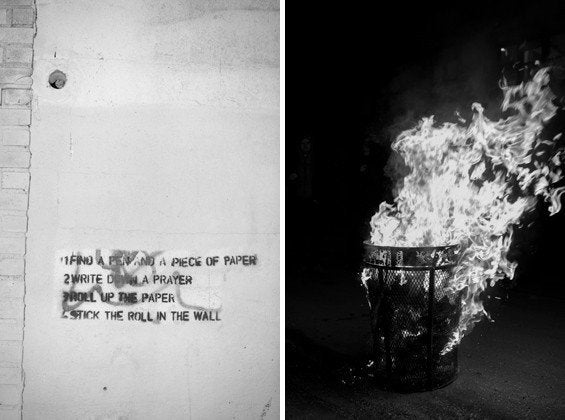 1 FIND A PEN AND A PIECE OF PAPER
2 WRITE DOWN A PRAYER
3 ROLL UP THE PAPER
4 STICK THE ROLL IN THE WALL